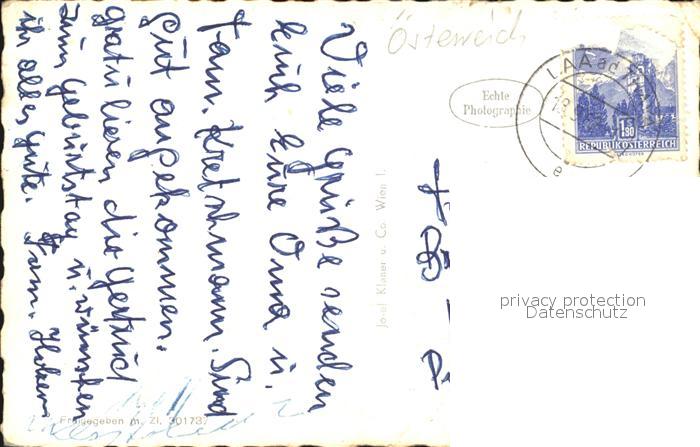 Österreich
Viele Grüße senden
Euch Eure Oma u.
Fam. Kretschmann. Sind
gut angekommen.
gratulieren die Gertrud
zum Geburtstag u. wünschen
ihr alles gute. Fam.
Echte
Photographie
LAA ad
1.80
REPUBLIK ÖSTERREICH
Josef Klaner u. Co. Wien I.
privacy protection
Datenschutz
Freigegeben m. Zl. 30173